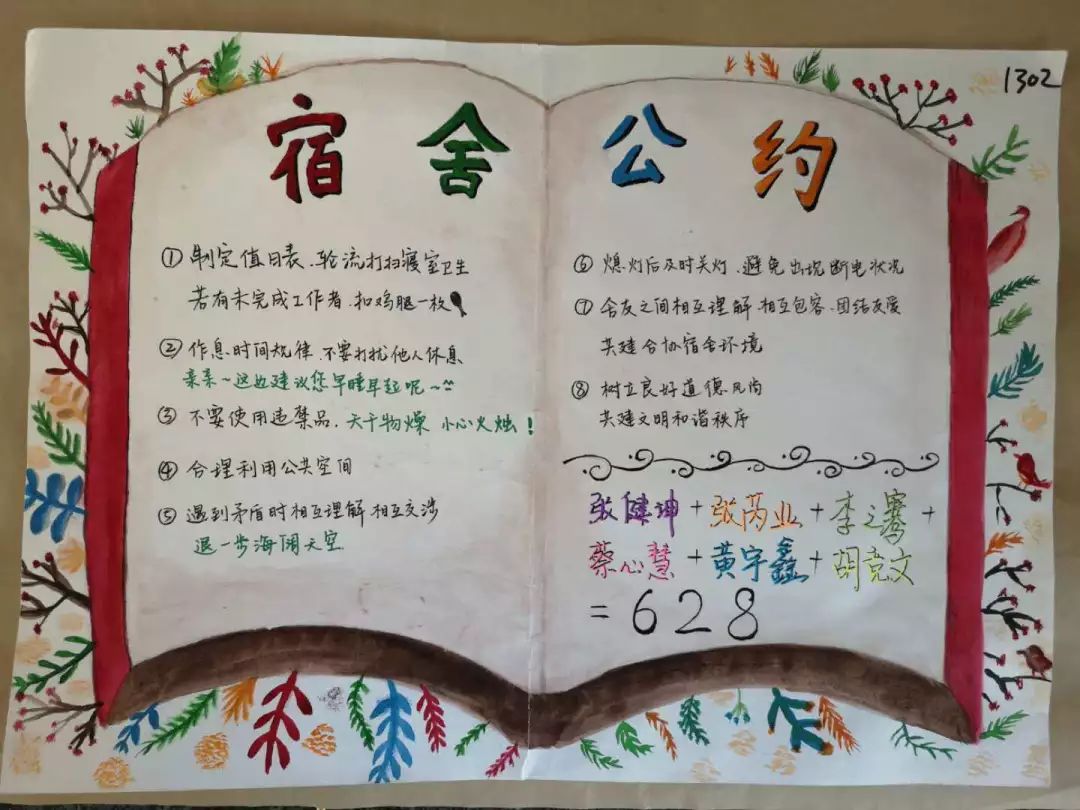 1302
宿舍公约
① 制定值日表、轮流打扫寝室卫生
若有未完成工作者,扣鸡腿一枚
② 作息时间规律,不要打扰他人休息
亲亲~这边建议您早睡早起呢~
③ 不要使用违禁品,天干物燥 小心火烛!
④ 合理利用公共空间
⑤ 遇到矛盾时相互理解 相互交涉
退一步海阔天空
⑥ 熄灯后及时关灯、避免出现断电状况
⑦ 舍友之间相互理解、相互包容、团结友爱
共建合协宿舍环境
⑧ 树立良好道德风尚
共建文明和谐秩序
张健坤+张芮业+李之骞+
蔡心慧+黄宇鑫+胡竞文
=628